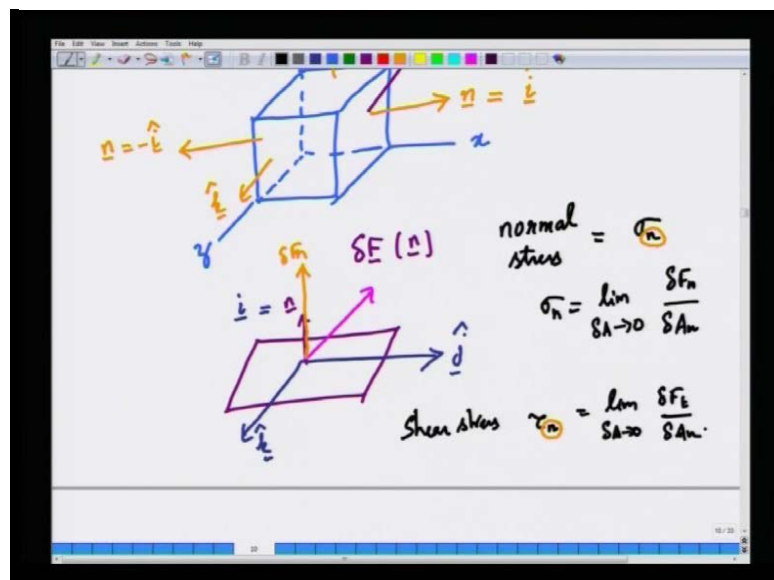 File Edit View Insert Actions Tools Help
n = î
n = -î
x
k̂
z
δFn
δF (n)
normal stress = σn
i = n
σn = lim δA→0 δFn / δAn
ĵ
k̂
Shear stress τn = lim δA→0 δFt / δAn.
10